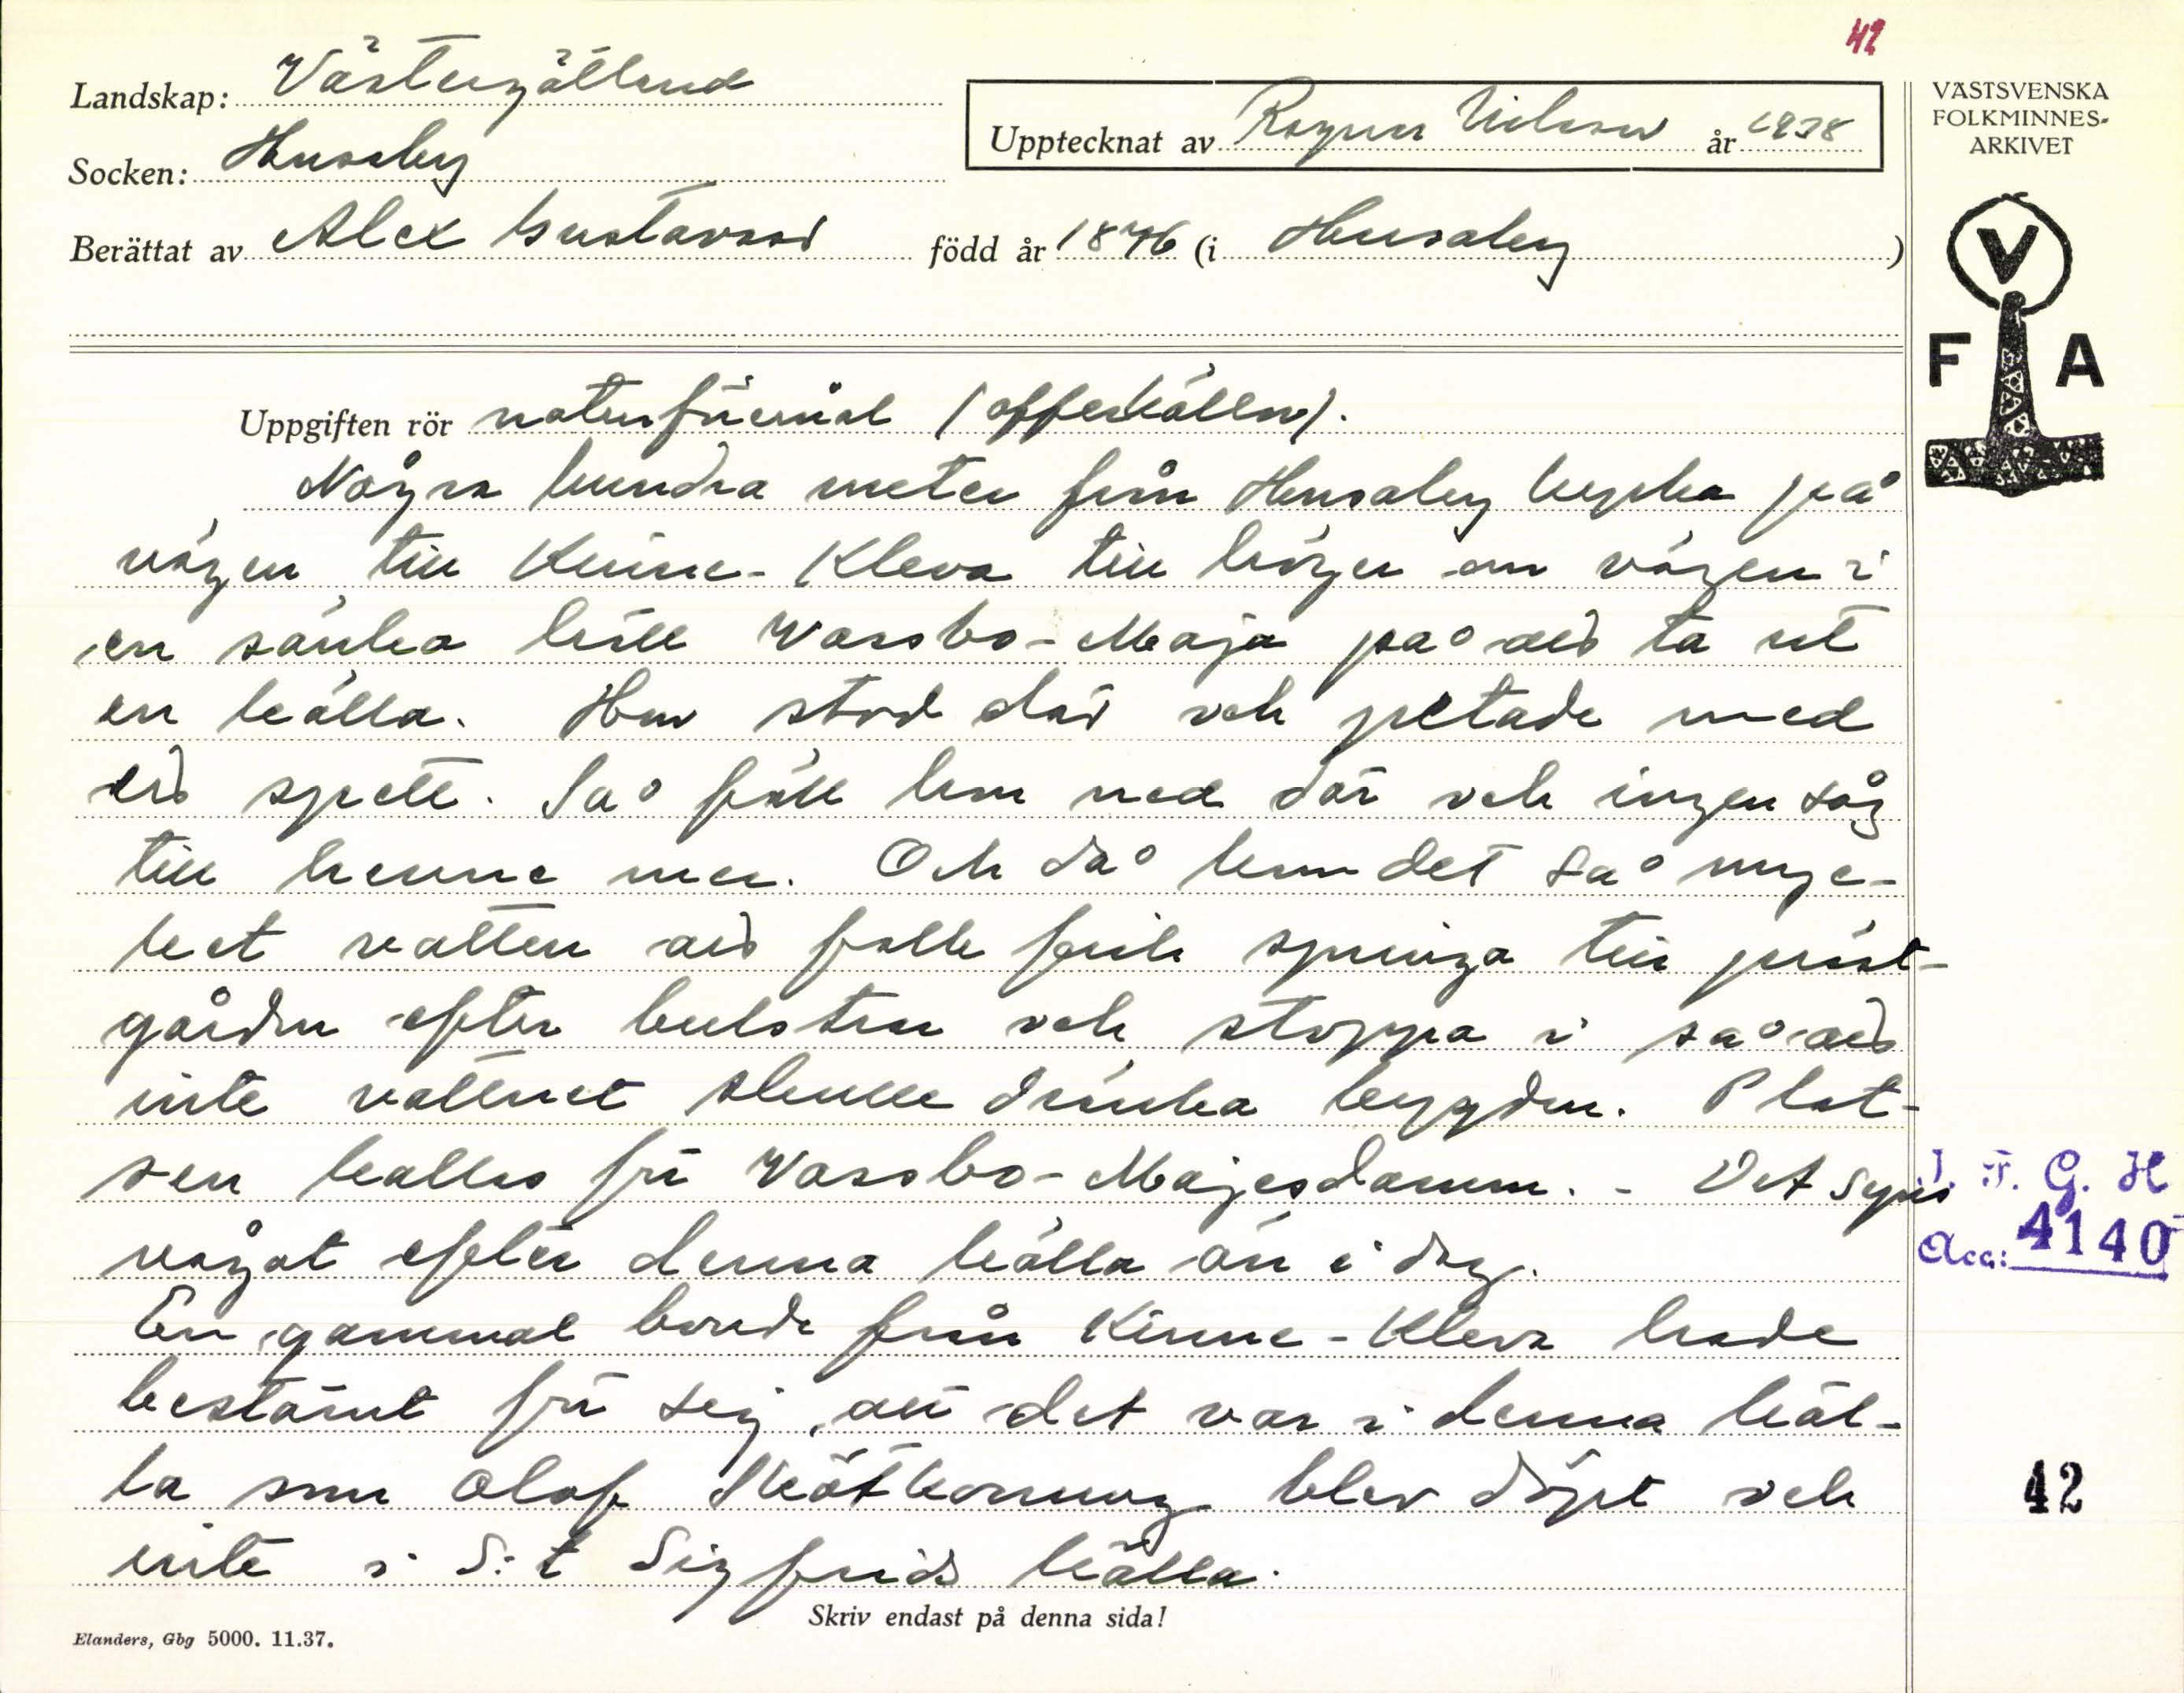 42
Landskap: Västergötland
Socken: Husaby
Upptecknat av Ragnar Nilsson år 1938
Berättat av Alex Gustavsson född år 1876 (i Husaby)
VÄSTSVENSKA
FOLKMINNES-
ARKIVET
V
F A
Uppgiften rör naturföremål (offerkällor).
Några hundra meter från Husaby kyrka på
vägen till Kinne-Kleva till höger om vägen i
en sänka höll Vassbo-Maja på att ta ut
en källa. Hon stod där och petade med
ett spett. Så föll hon ned där och ingen såg
till henne mer. Och då kom det så myc-
ket vatten att folk fick springa till präst-
gården efter bulstrar och stoppa i så att
inte vattnet skulle dränka bygden. Plat-
sen kallas för Vassbo-Majesdamm. - Det syns
något efter denna källa än i dag.
En gammal bonde från Kinne-Kleva hade
bestämt för sig, att det var i denna käl-
la som Olof Skötkonung blev döpt och
inte i S:t Sigfrids källa.
I. F. G. H
Acc: 4140
42
Skriv endast på denna sida!
Elanders, Gbg 5000. 11.37.